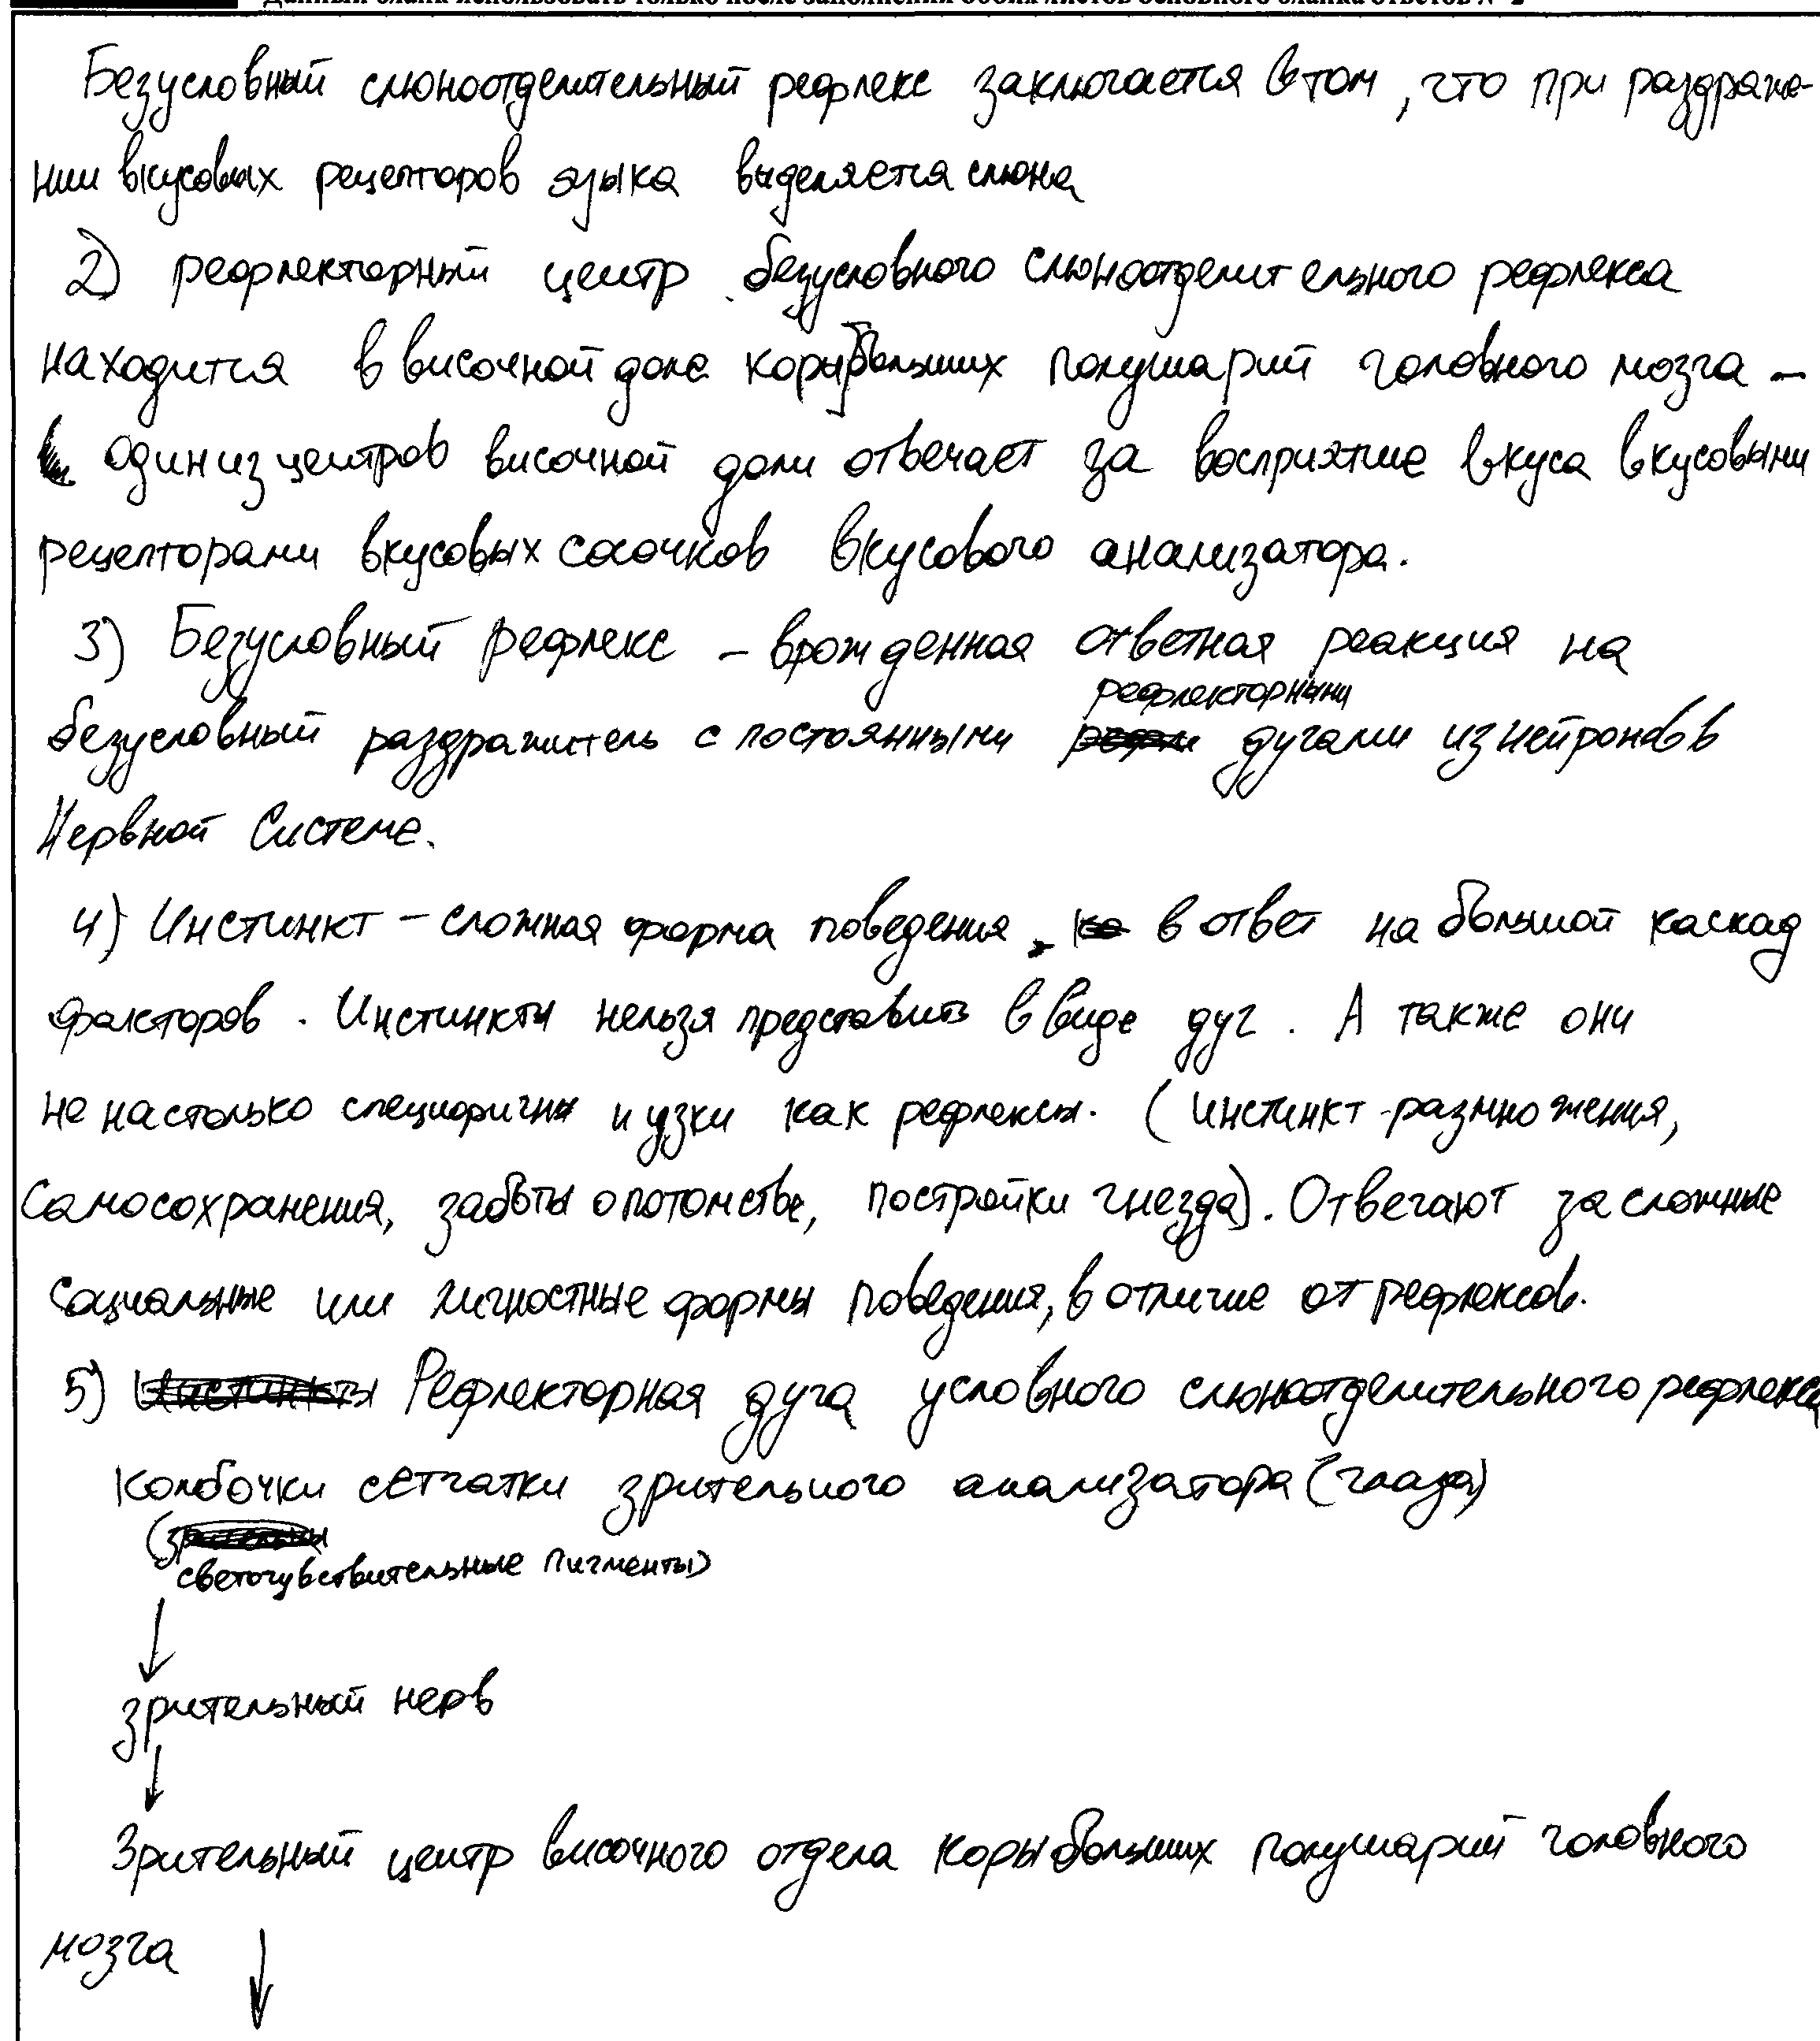 Данный бланк использовать только после заполнения обоих листов основного бланка ответов № 2
Безусловный слюноотделительный рефлекс заключается в том, что при раздраже-
нии вкусовых рецепторов языка выделяется слюна
2) рефлекторный центр безусловного слюноотделительного рефлекса
находится в височной доле коры больших полушарий головного мозга –
один из центров височной доли отвечает за восприятие вкуса вкусовыми
рецепторами вкусовых сосочков вкусового анализатора.
3) Безусловный рефлекс – врожденная ответная реакция на
безусловный раздражитель с постоянными рефлекторными дугами из нейронов в
Нервной Системе.
4) Инстинкт – сложная форма поведения в ответ на большой каскад
факторов. Инстинкты нельзя представить в виде дуг. А также они
не настолько специфичны и узки как рефлексы. (инстинкт размножения,
самосохранения, заботы о потомстве, постройки гнезда). Отвечают за сложные
социальные или личностные формы поведения, в отличие от рефлексов.
5) Инстинкты Рефлекторная дуга условного слюноотделительного рефлекса
Колбочки сетчатки зрительного анализатора (глаза)
(светочувствительные пигменты)
↓
зрительный нерв
↓
Зрительный центр височного отдела коры больших полушарий головного
мозга ↓